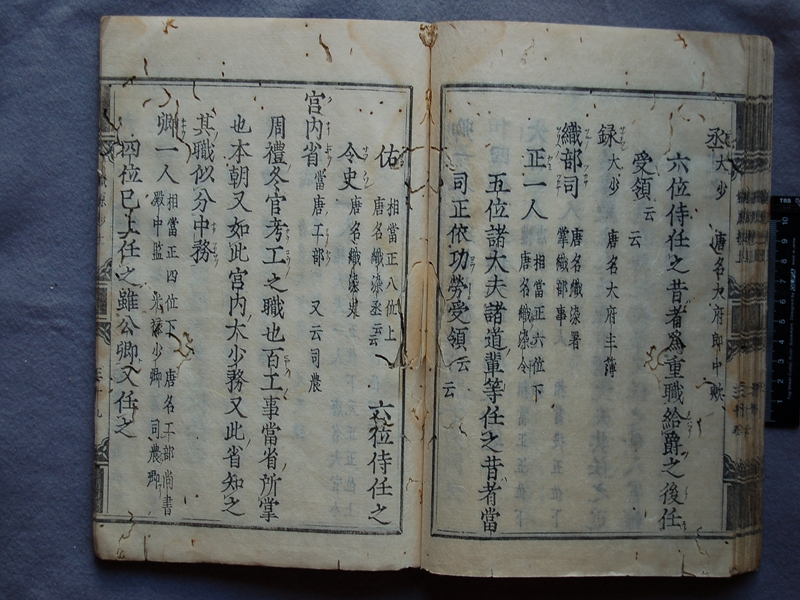 丞 大少 唐名大府郎中歟
六位侍任之昔者為重職給爵之後任
受領云云
録 大少 唐名大府主簿
織部司 唐名織染署 掌織部事
正一人 相當正六位下 唐名織染令
五位諸大夫諸道輩等任之昔者當
司正依功勞受領云云
佑 相當正八位上 唐名織染丞云云 六位侍任之
令史 唐名織染史
宮内省 當唐工部 又云司農
周禮冬官考工之職也百工事當省所掌
也本朝又如此宮内大少務又此省知之
其職似分中務
卿一人 相當正四位下 唐名工部尚書 殿中監 光禄少卿 司農卿
四位已上任之雖公卿又任之